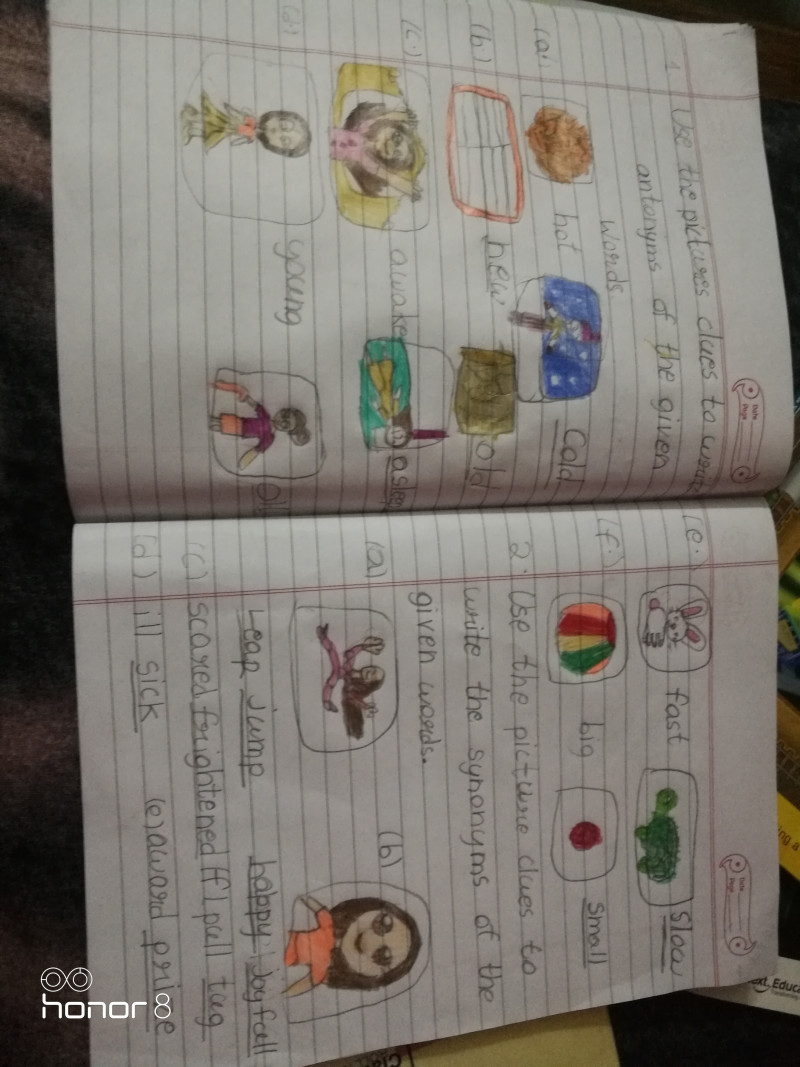 Date
Page
1. Use the pictures clues to write
antonyms of the given
words.
(a) hot Cold
(b) new old
(c.) awake asleep
(d) young
Date
Page
(e. fast slow
(f. big small
2. Use the picture clues to
write the synonyms of the
given words.
(a) (b)
Leap jump happy joyfull
(c) scared frightened (f) pull tug
(d) ill sick (e) award prize
honor 8
ext. Educa